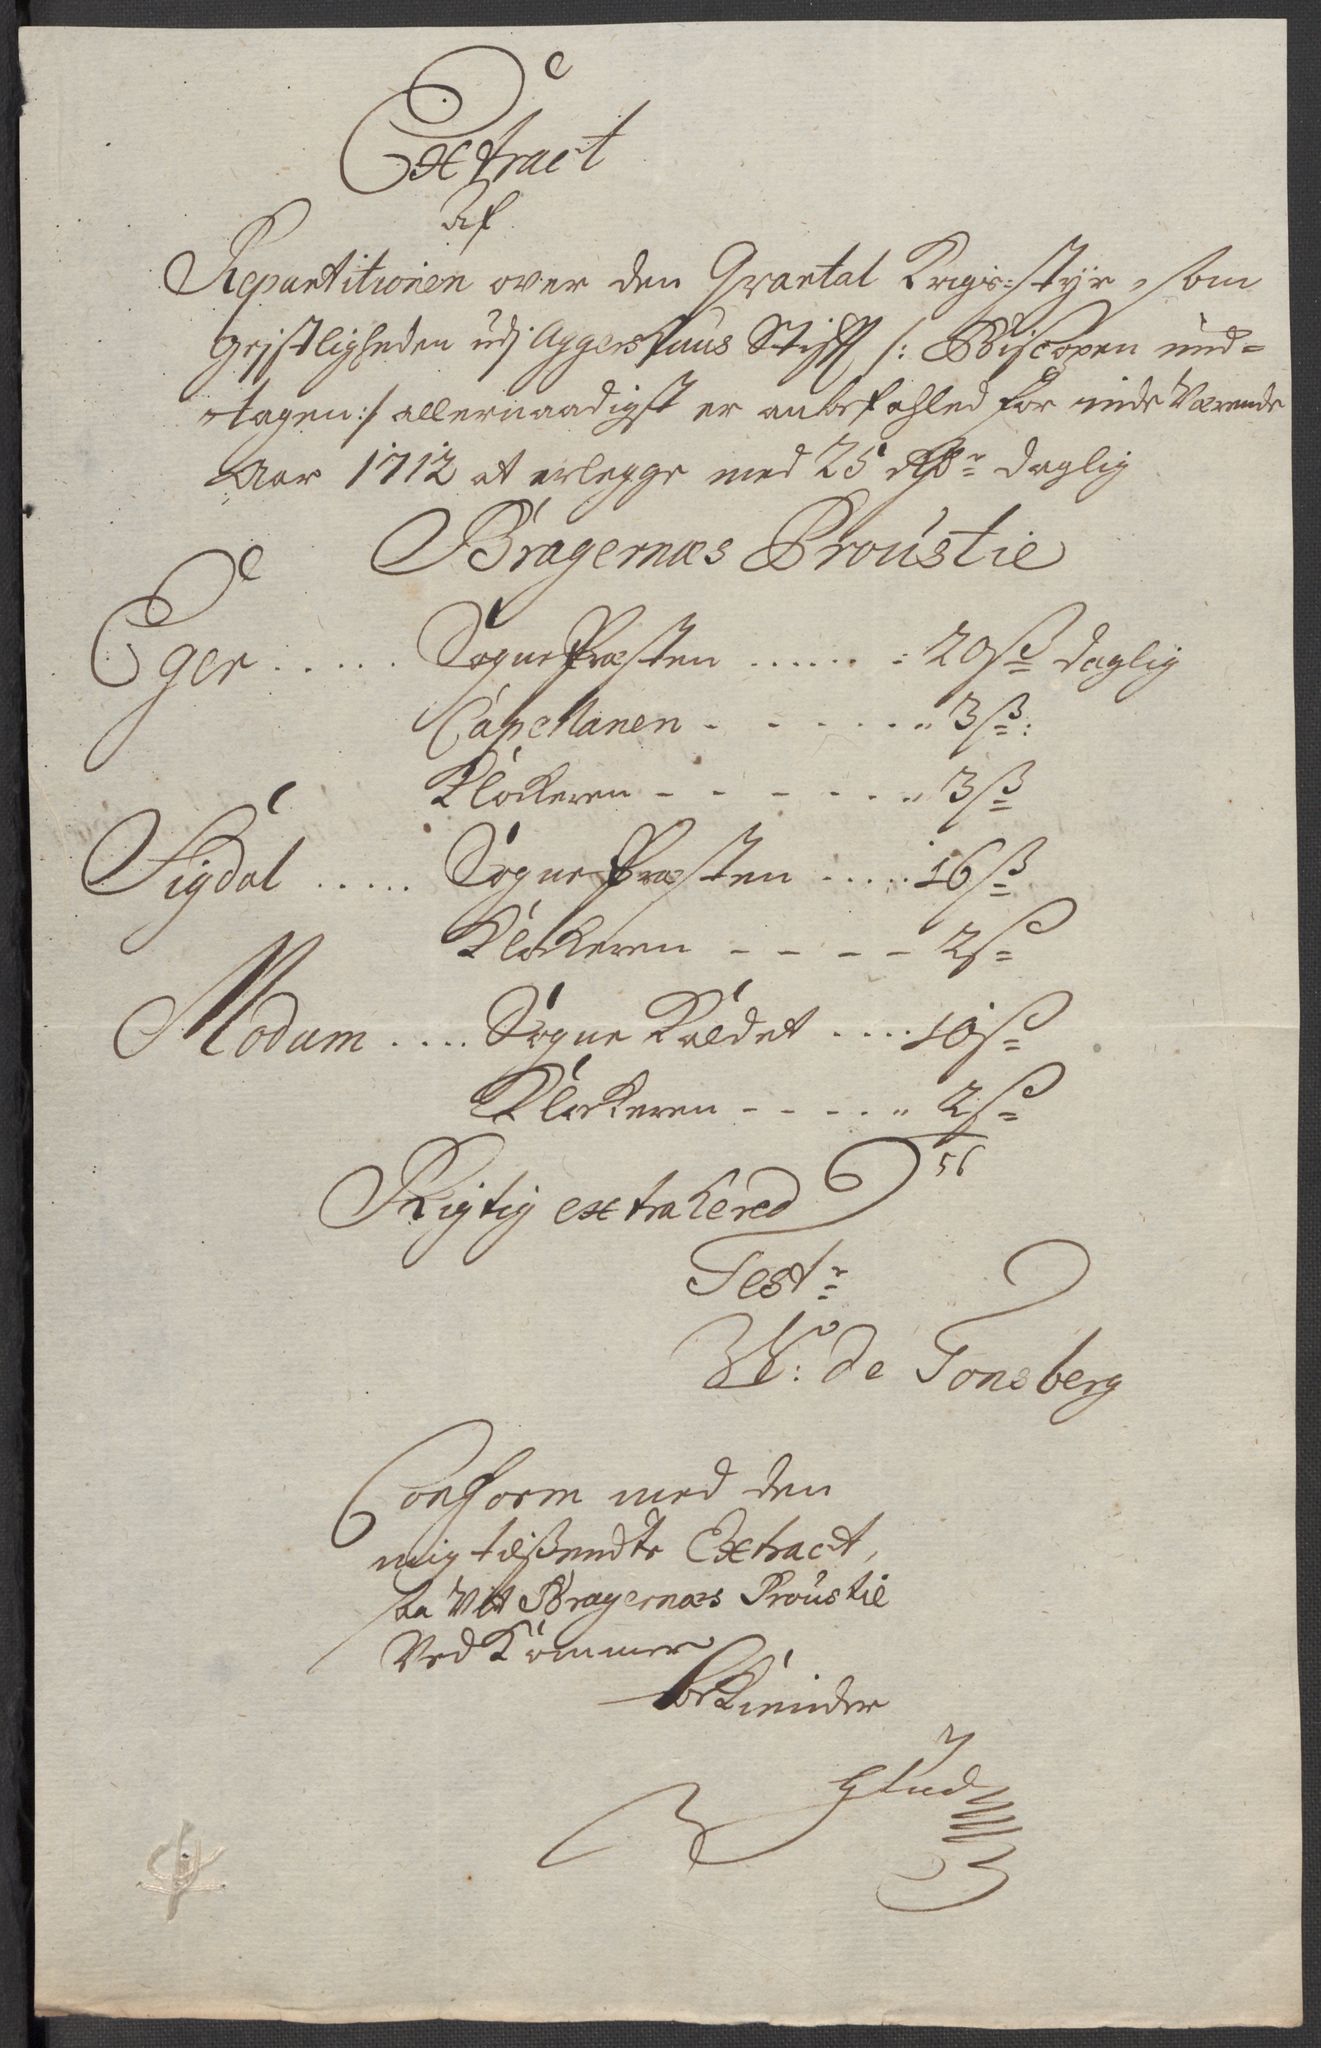 Extract
Af
Repartitionen over den Qvartal Krigs=styr, som
Geistligheden udj Aggershuus Stifft /: Biscopen und=
tagen :/ allernaadigst er anbefahled for inde Værende
Aar 1712 at erlegge med 25 rdr daglig
Bragernæs Proustie
Eger ..... SognePræsten ...... 20 ß daglig
Capellanen - - - - - - 3 ß:
Klockeren - - - - - - 3 ß
Sigdal ..... SognePræsten ..... 16 ß
Klockeren - - - - 2 ß
Modum .... Sogne Kaldet .... 10 ß
Klockeren - - - - - 2 ß
56
Rigtig extrahered
Test:
W: de Tonsberg
Conform med den
mig tilsendte Extract,
saa vit Bragernæs Proustie
VedKommer
bekiender
Glud